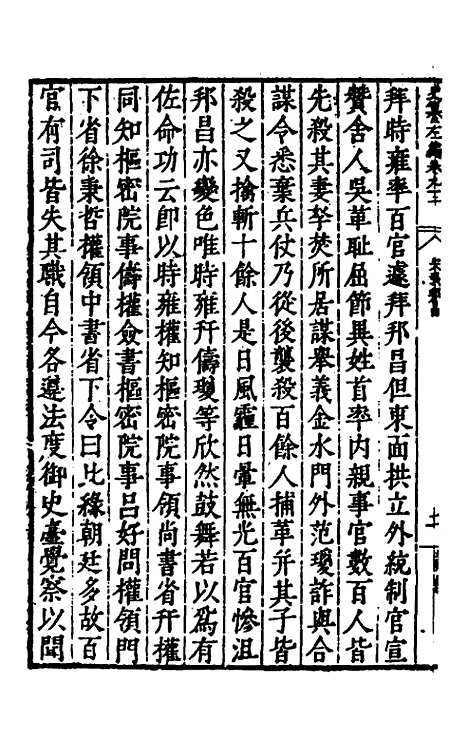 拜時雍率百官遽拜邦昌但東面拱立外統制官宣
贊舍人吳革恥屈節異姓首率內親事官數百人皆
先殺其妻孥焚所居謀舉義金水門外范瓊詐與合
謀令悉棄兵仗乃從後襲殺百餘人捕革幷其子皆
殺之又擒斬十餘人是日風霾日暈無光百官慘沮
邦昌亦變色唯時雍幵儔瓊等欣然鼓舞若以爲有
佐命功云卽以時雍權知樞密院事領尚書省幵權
同知樞密院事儔權僉書樞密院事呂好問權領門
下省徐秉哲權領中書省下令曰比緣朝廷多故百
官有司皆失其職自今各遵法度御史臺覺察以聞